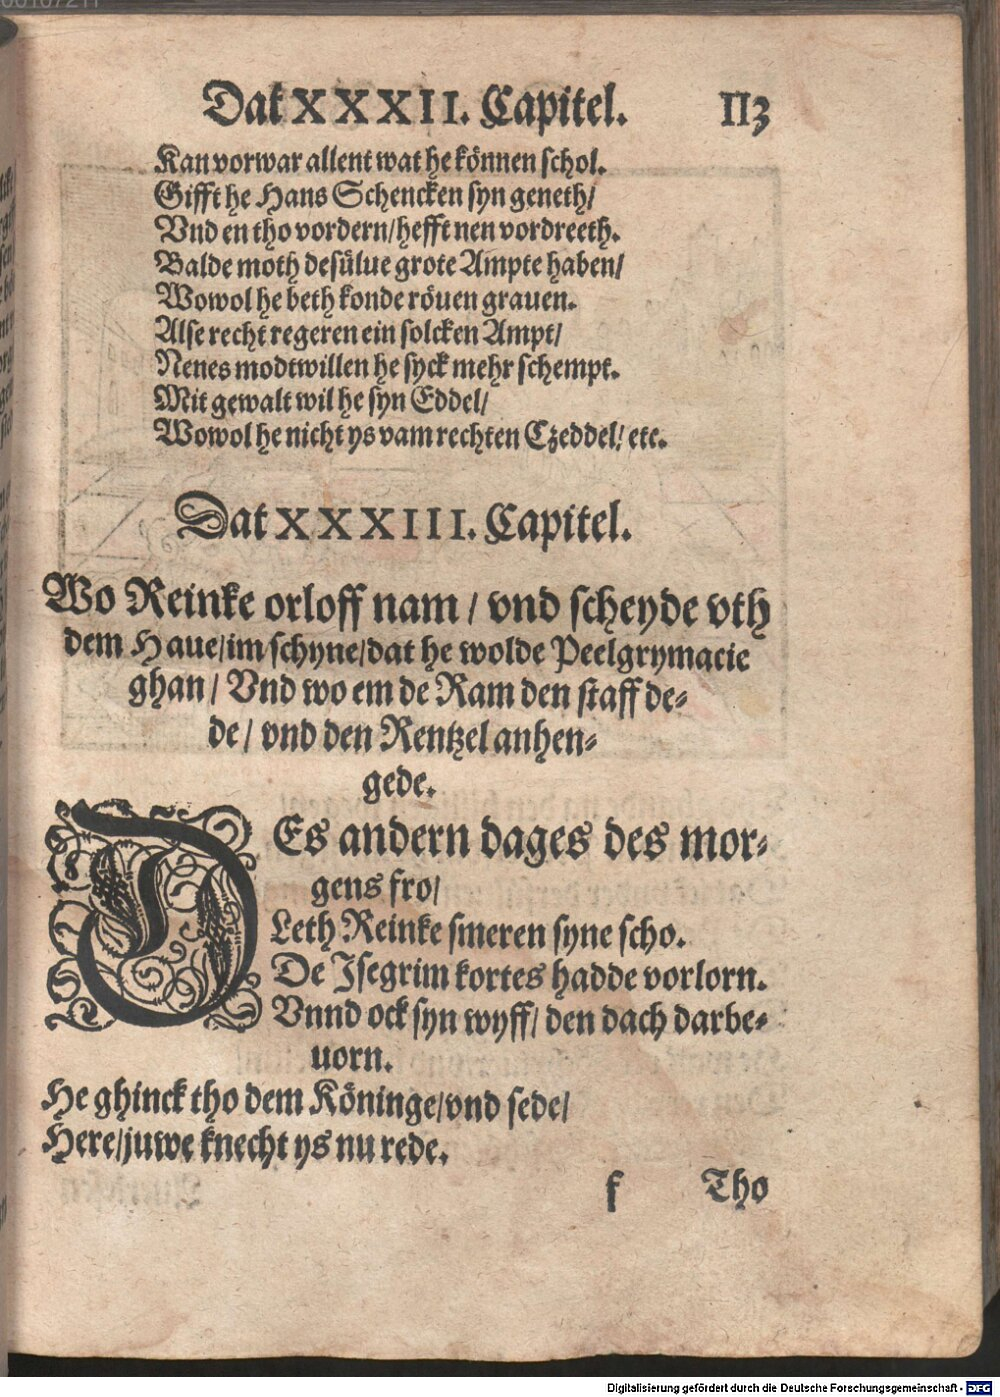 Dat XXXII. Capitel. 113
Kan vorwar allent wat he können schol.
Gifft he Hans Schencken syn geneth/
Vnd en tho vordern/hefft nen vordreeth.
Balde moth desülue grote Ampte haben/
Wowol he beth konde röuen grauen.
Alse recht regeren ein solcken Ampt/
Nenes modtwillen he syck mehr schempt.
Mit gewalt wil he syn Eddel/
Wowol he nicht ys vam rechten Czeddel/ etc.
Dat XXXIII. Capitel.
Wo Reinke orloff nam / vnd scheyde vth
dem Haue/im schyne/dat he wolde Peelgrymacie
ghan / Vnd wo em de Ram den staff de-
de/ vnd den Rentzel anhen-
gede.
DEs andern dages des mor-
gens fro/
Leth Reinke smeren syne scho.
De Isegrim kortes hadde vorlorn.
Vnnd ock syn wyff/ den dach darbe-
uorn.
He ghinck tho dem Köninge/vnd sede/
Here/juwe knecht ys nu rede.
f Tho
Digitalisierung gefördert durch die Deutsche Forschungsgemeinschaft - DFG